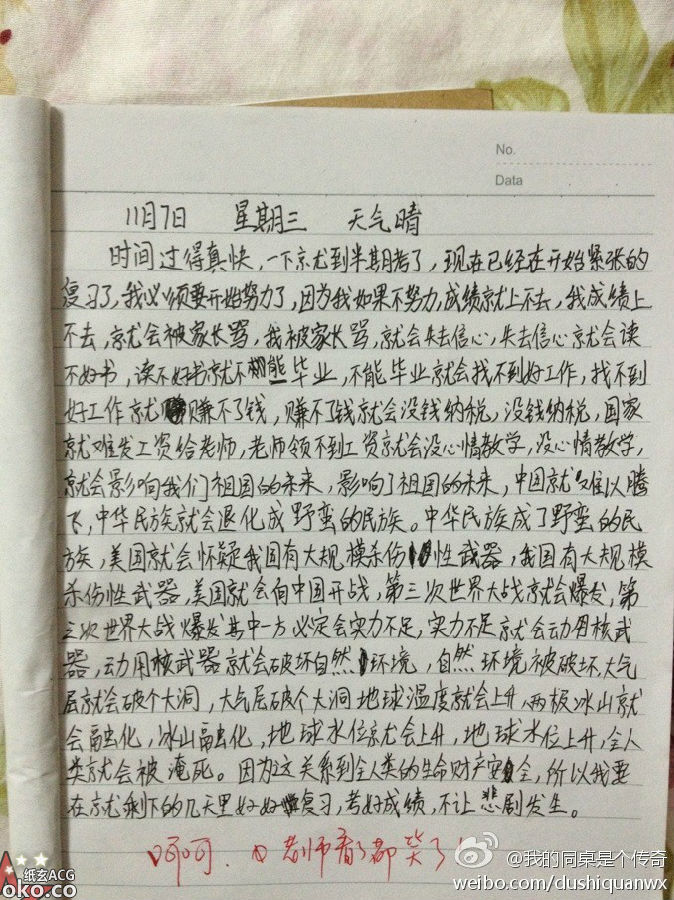 No.
Data
11月7日 星期三 天气晴
时间过得真快，一下就到半期考了，现在已经在开始紧张的
复习了，我必须要开始努力了，因为我如果不努力，成绩就上不去，我成绩上
不去，就会被家长骂，我被家长骂，就会失去信心，失去信心就会读
不好书，读不好书就不能毕业，不能毕业就会找不到好工作，找不到
好工作就赚不了钱，赚不了钱就会没钱纳税，没钱纳税，国家
就难发工资给老师，老师领不到工资就会没心情教学，没心情教学，
就会影响我们祖国的未来，影响了祖国的未来，中国就难以腾
飞，中华民族就会退化成野蛮的民族。中华民族成了野蛮的民
族，美国就会怀疑我国有大规模杀伤性武器，我国有大规模
杀伤性武器，美国就会向中国开战，第三次世界大战就会爆发，第
三次世界大战爆发其中一方必定会实力不足，实力不足就会动用核武
器，动用核武器就会破坏自然环境，自然环境被破坏，大气
层就会破个大洞，大气层破个大洞地球温度就会上升，两极冰山就
会融化，冰山融化，地球水位就会上升，地球水位上升，全人
类就会被淹死。因为这关系到全人类的生命财产安全，所以我要
在就剩下的几天里好好复习，考好成绩，不让悲剧发生。
呵呵，老师看了都笑了！
@我的同桌是个传奇
weibo.com/dushiquanwx
纸玄ACG
oko.co